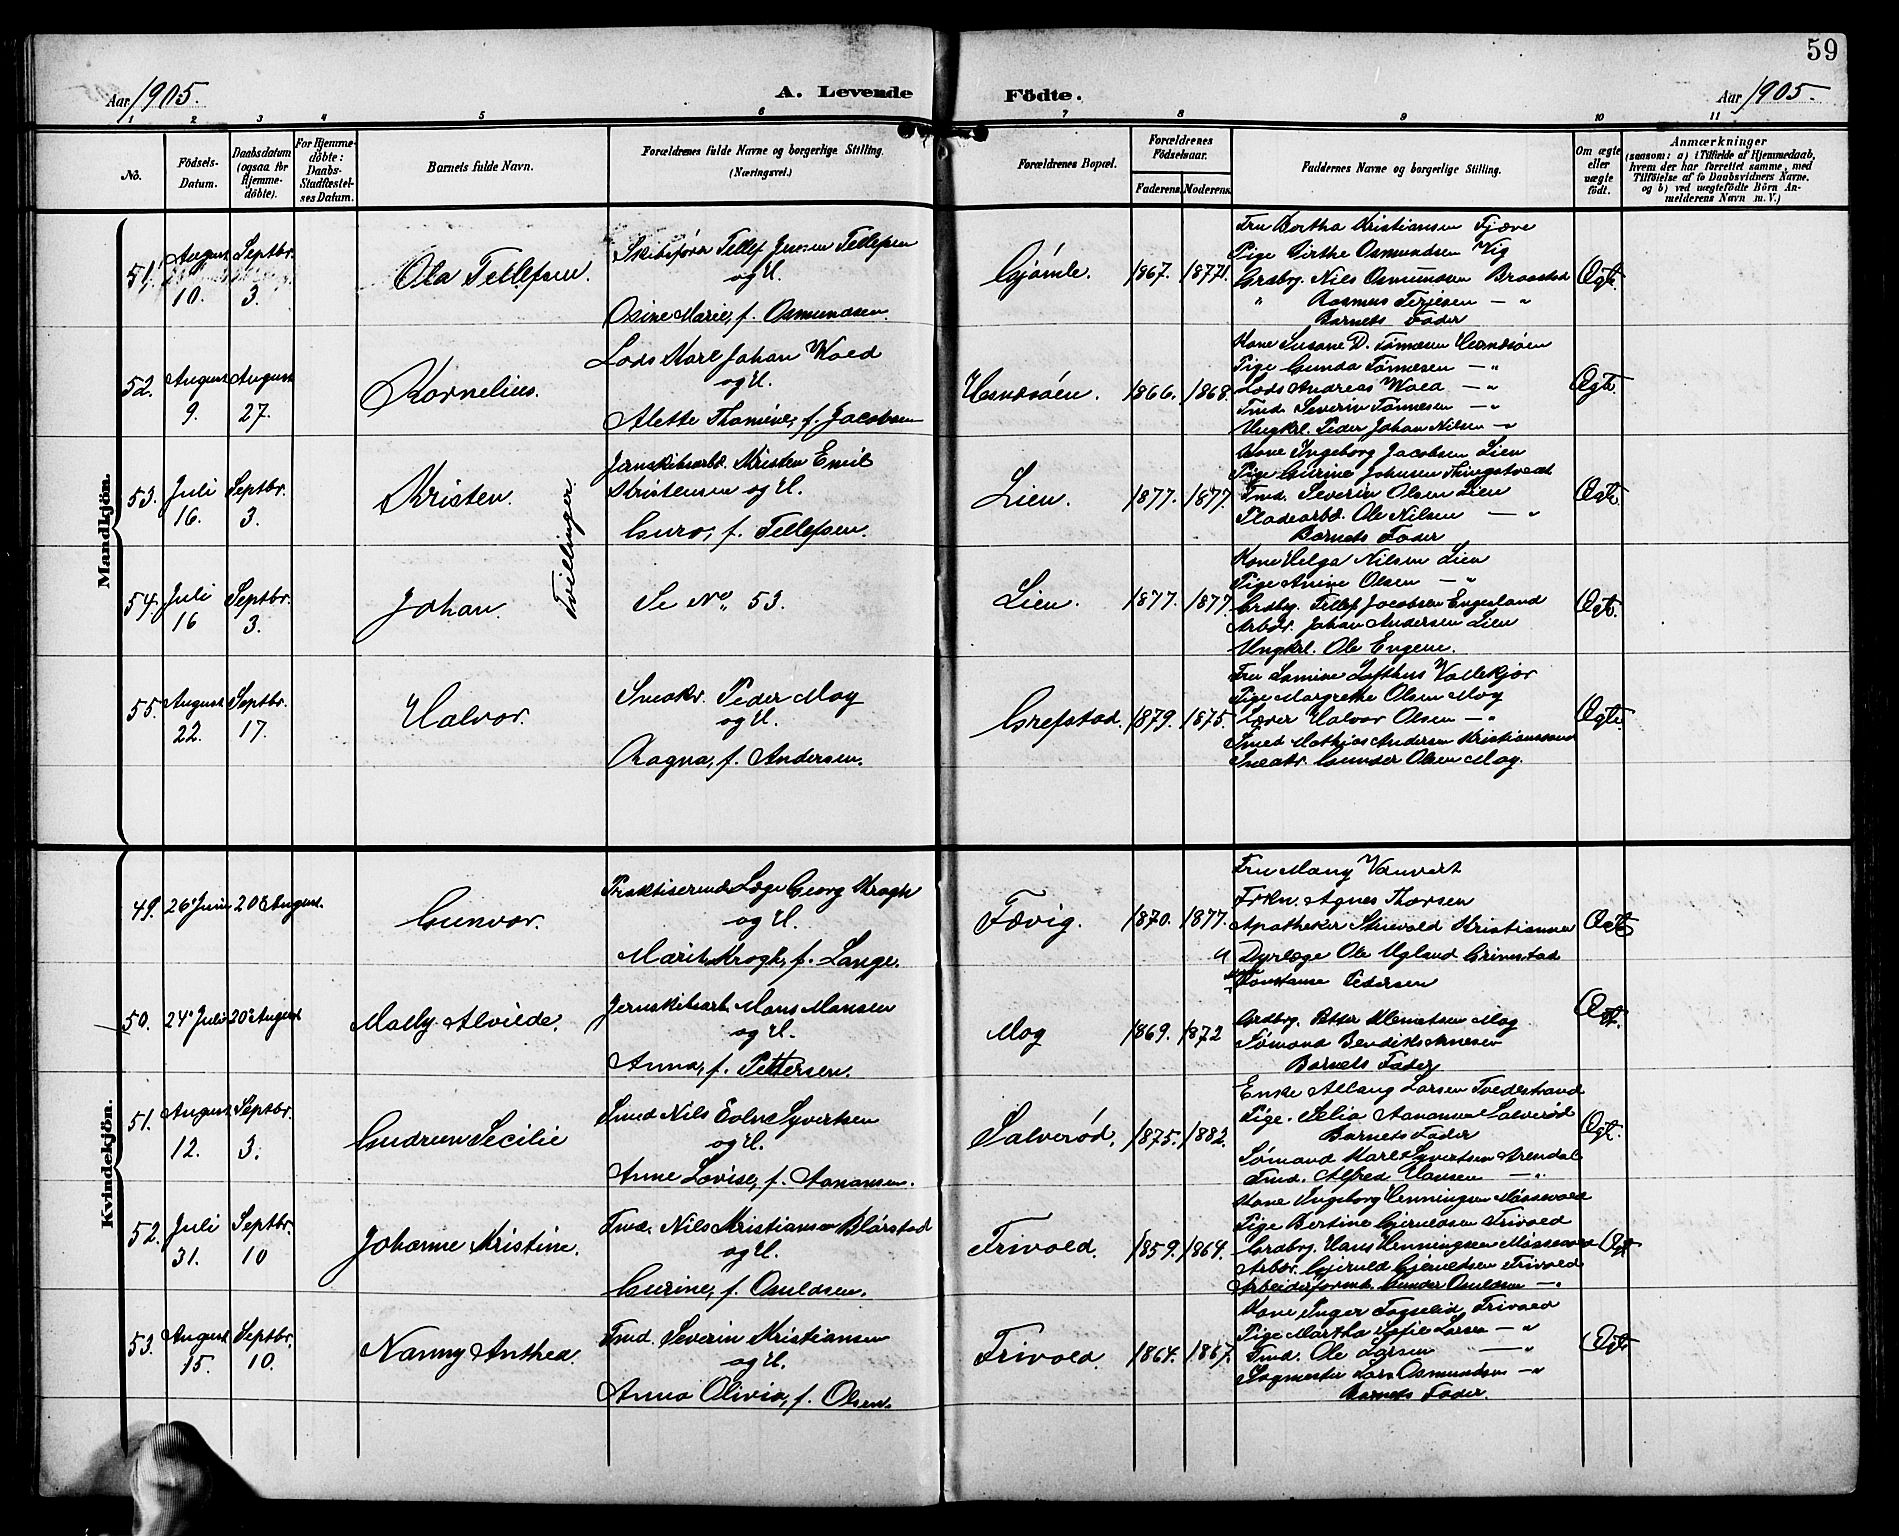 59
Aar 1905.
A. Levende Födte.
Aar 1905.
1 2 3 4 5 6 7 8 9 10 11
No.
Födsels-Datum.
Daabsdatum (ogsaa for Hjemmedöbte).
For Hjemmedöbte: Daabs-Stadfæstelses Datum.
Barnets fulde Navn.
Forældrenes fulde Navne og borgerlige Stilling.
(Næringsvei.)
Forældrenes Bopæl.
Forældrenes Födselsaar.
Faderens. Moderens.
Faddernes Navne og borgerlige Stilling.
Om ægte eller uægte födt.
Anmærkninger
(saasom: a) i Tilfælde af Hjemmedaab,
hvem der har forrettet samme, med
Tilföielse af to Daabsvidners Navne,
og b) ved uægtefödte Börn An-
melderens Navn m. V.)
Mandkjön.
51. August 10. Septbr. 3.
Ola Tellefsen.
Skibsfører Tellef Jensen Tellefsen
og H.
Osine Marie, f. Osmundsen.
Gjømle. 1867. 1877.
Fru Bertha Kristiansen Fjære
Pige Birthe Osmundsen Vig
Grdbrg. Nils Osmundsen Braastad
" Rasmus Terjesen — "
Barnets Fader
Ægte.
52. August 9. August 27.
Kornelius.
Lods Karl Johan Wold
og H.
Alette Thomine, f. Jacobsen
Hesnesøen. 1866. 1868.
Kone Susane D. Tønnesen Hesnesøen
Pige Gunda Tønnesen — "
Lods Andreas Wold — "
Tmd. Severin Tønnesen — "
Ungkrl. Peder Johan Nilsen — "
Ægte.
53. Juli 16. Septbr. 3.
Kristen.
Tvillinger.
Jernskibsarb. Kristen Emil
Kristensen og H.
Guro, f. Tellefsen.
Lien. 1877. 1877.
Kone Ingeborg Jacobsen Lien
Pige Gurine Johnsen Thingstveit
Tmd. Severin Olsen Lien
Pladearb. Ole Nilsen — "
Barnets Fader
Ægte.
54. Juli 16 Septbr. 3.
Johan.
Se No. 53.
Lien. 1877. 1877.
Kone Helga Nilsen Lien
Pige Anine Olsen — "
Grdbrg. Tellef Jacobsen Engesland
Arbdr. Johan Andersen Lien
Ungkrl. Ole Engene.
Ægte.
55. August 22. Septbr. 17.
Halvor.
Smakr. Peder Moy
og H.
Ragna, f. Andersen.
Grefstad. 1879. 1875.
Fru Lomine Lofthus Vallekjær
Pige Margrethe Olsen Moy
Lærer Halvor Olsen — "
Smed Mathias Andersen Kristianssand
Smakr. Gunder Olsen Moy.
Ægte.
Kvindekjön.
49. 26' Juni 20' August.
Gunvor.
Praktiserende Læge Georg Krogh
og H.
Marit Krogh, f. Lange.
Fævig. 1870. 1877.
Fru Many
Frkn. Agnes Thorsen
Apotheker
Dyrlæge Ole Ugland Grimstad
Ægte
50. 24' Juli 20' August
Mally Alvilde.
Jernskibsarb. Mons Monsen
og H.
Anna, f. Pettersen.
Moy 1869. 1872
Konstanse Pedersen
Grdbrg. Petter Klemetsen Moy
Sømand
Barnets Fader
Ægte.
51. August 12. Septbr. 3.
Gudrun Secilie
Smed Nils Edvard Syvertsen
og H.
Anne Lovise, f. Aanonsen.
Salverød. 1875. 1882.
Enke Allang Larsen Tvedestrand
Pige. Selia Aanonsen Salverød
Barnets Fader
Sømand Karl Syvertsen Arendal
Tmd. Alfred Hansen — "
Ægte.
52. Juli 31. Septbr. 10
Johanne Kristine.
Tmd. Nils Kristiansen Blørstad
og H.
Gurine, f. Osuldsen.
Trivold. 1859. 1869.
Kone Ingeborg Henningsen Møssevold
Pige Bertine Gjeruldsen Trivold
Grdbrg. Hans Henningsen Møssevold
Arbdr. Gjeruld Gjeruldsen Trivold
Arbeidsformd. Gunder Osuldsen — "
Ægte
53. August 15. Septbr. 10.
Nanny Anthea.
Tmd. Severin Kristiansen
og H.
Anna Olivia, f. Olsen.
Trivold. 1864. 1867.
Kone Inger Fagerlid Trivold
Pige Martha Sofie Larsen — "
Tmd. Ole Larsen — "
Sagmester Lars Osmundsen — "
Barnets Fader.
Ægte